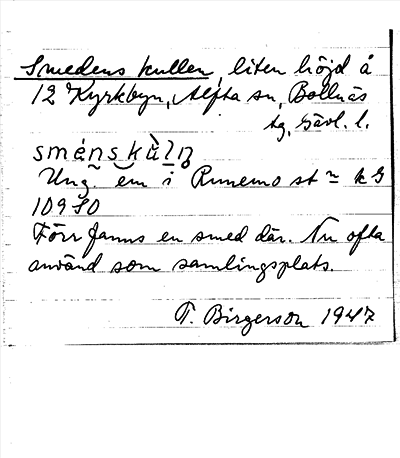 Smedens kullen, liten höjd å
12 Kyrkbyn, Alfta sn, Bollnäs
tg, Gävl. l.
sménskùln
Ung. em i Runemo st
10980
Förr fanns en smed där. Nu ofta
använd som samlingsplats.
T. Birgerson 1947